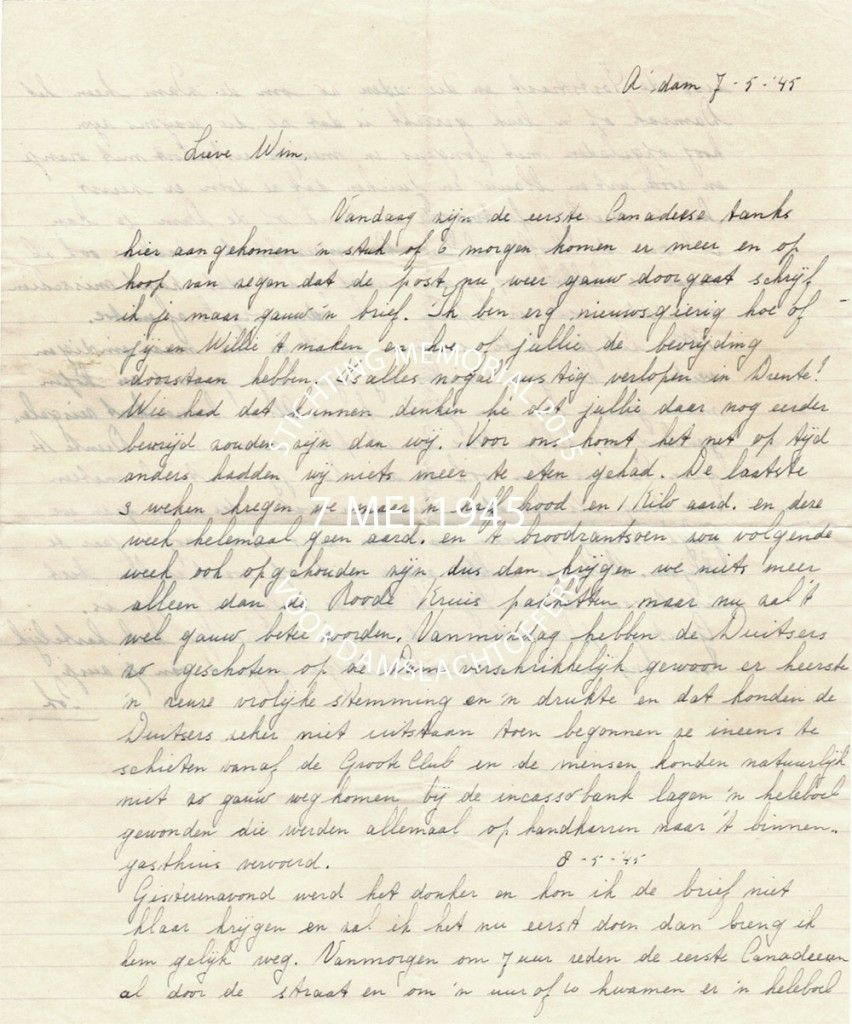 A'dam 7-5-'45
Lieve Wim.
Vandaag zijn de eerste Canadeese tanks
hier aangekomen 'n stuk of 6 morgen komen er meer en op
hoop van zegen dat de post nu weer gauw doorgaat schrijf
ik je maar gauw 'n brief. Ik ben erg nieuwsgierig hoe of
jij en Willie 't maken en hoe of jullie de bevrijding
doorstaan hebben. Is alles nogal rustig verlopen in Drente?
Wie had dat kunnen denken hè dat jullie daar nog eerder
bevrijd zouden zijn dan wij. Voor ons komt het net op tijd
anders hadden wij niets meer te eten gehad. De laatste
3 weken kregen we maar 'n half brood en 1 Kilo aard. en deze
week helemaal geen aard. en 't broodrantsoen zou volgende
week ook opgehouden zijn dus dan krijgen we niets meer
alleen dan de Roode Kruis pakketten maar nu zal 't
wel gauw beter worden. Vanmiddag hebben de Duitsers
zo geschoten op de Dam verschrikkelijk gewoon er heerste
'n reuze vrolijke stemming en 'n drukte en dat konden de
Duitsers zeker niet uitstaan toen begonnen ze ineens te
schieten vanaf de Groote Club en de mensen konden natuurlijk
niet zo gauw weg komen bij de incassobank lagen 'n heleboel
gewonden die werden allemaal op handkarren naar 't binnen-
gasthuis vervoerd.
8-5-'45
Gisterenavond werd het donker en kon ik de brief niet
klaar krijgen en zal ik het nu eerst doen dan breng ik
hem gelijk weg. Vanmorgen om 7 uur reden de eerste Canadeezen
al door de straat en om 'n uur of 10 kwamen er 'n heleboel
STICHTING MEMORIAL 2015
7 MEI 1945
VOOR DAMSLACHTOFFERS